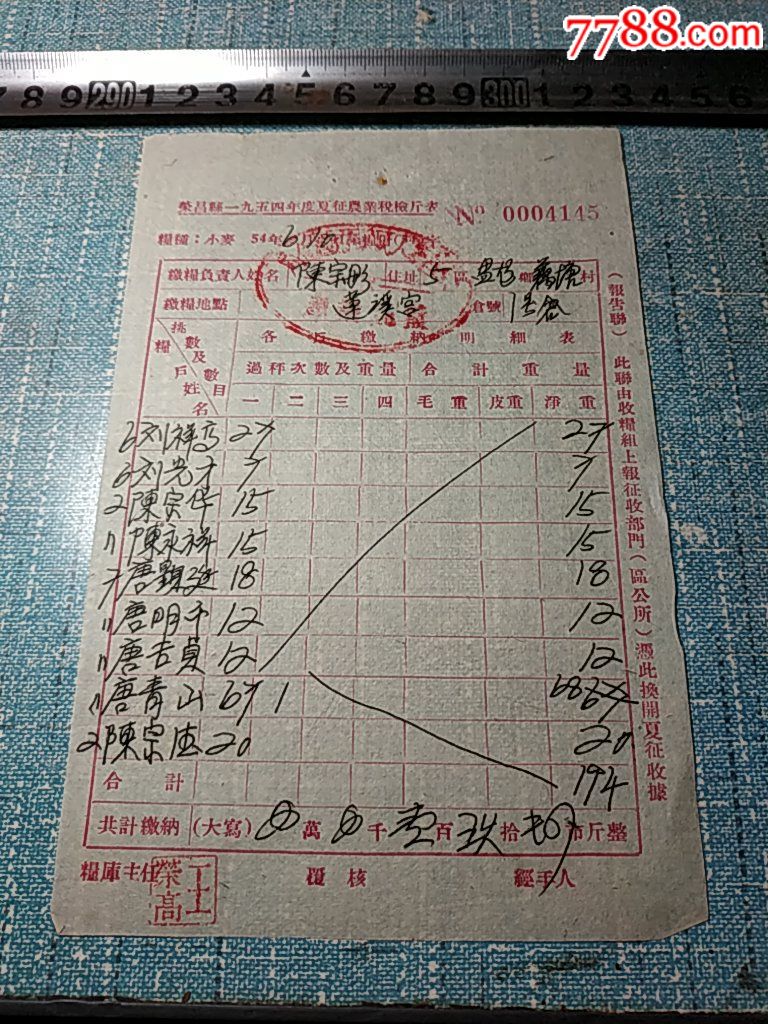 7788.com
7 8 9 290 1 2 3 4 5 6 7 8 9 300 1 2 3 4 5 6
榮昌縣一九五四年度夏征農業稅檢斤表 № 0004145
糧種：小麥 54年6月
繳糧負責人姓名 陳宗彤 住址 5 區 鄉 村
繳糧地點 宮 倉號
挑數及戶數 糧戶姓名 目 各戶繳納明細表
過秤次數及重量 合計重量
一 二 三 四 毛重 皮重 淨重
6 刘祥高 27 27
6 刘光才 7 7
2 陳宗华 15 15
〃 陳永祥 15 15
7 唐顯廷 18 18
〃 唐明千 12 12
〃 唐吉貞 12 12
〃 唐青山 67 1 68
2 陳宗 20 20
合計 194
共計繳納 (大寫) 0 萬 0 千 壹 百 玖 拾 市斤整
糧庫主任 王榮高 覆核 經手人
(報告聯) 此聯由收糧組上報征收部門(區公所)憑此換開夏征收據